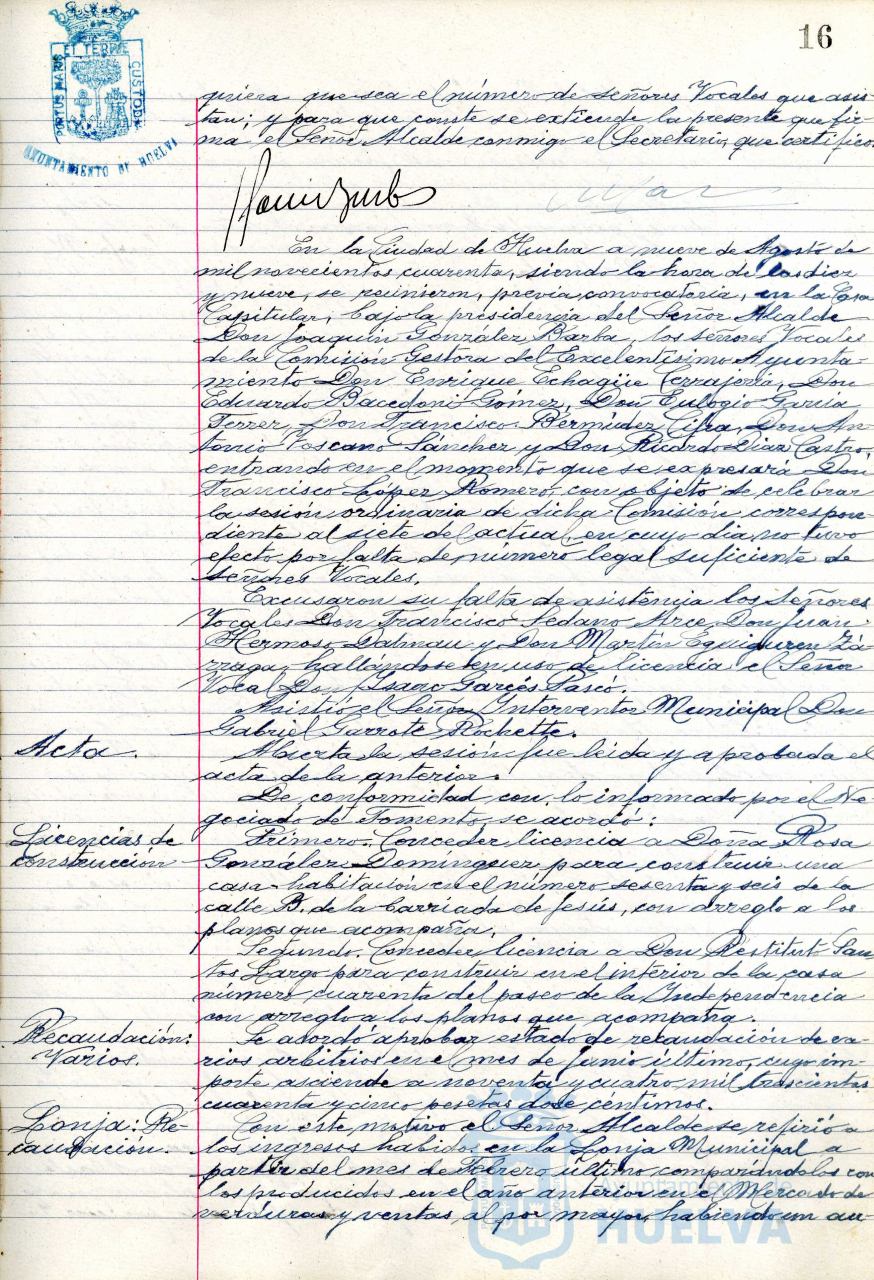 16
PORTUS MARIS ET TERRE CUSTODIA
AYUNTAMIENTO DE HUELVA
quiera que sea el número de señores Vocales que asis-
tan; y para que conste se extiende la presente que fir-
ma el Señor Alcalde conmigo el Secretario, que certifico.
En la Ciudad de Huelva a nueve de Agosto de
mil novecientos cuarenta, siendo la hora de las diez
y nueve, se reunieron, previa convocatoria, en la Casa
Capitular, bajo la presidencia del Señor Alcalde
Don Joaquín González Barba, los señores Vocales
de la Comisión Gestora del Excelentísimo Ayunta-
miento Don Enrique Echagüe Cerrajería, Don
Eduardo Bacedoni Gómez, Don Eulogio García
Ferrer, Don Francisco Bermúdez Cifra, Don An-
tonio Toscano Sánchez y Don Ricardo Díaz Castro,
entrando en el momento que se expresará Don
Francisco López Romero, con objeto de celebrar
la sesión ordinaria de dicha Comisión correspon-
diente al siete del actual, en cuyo dia no tuvo
efecto por falta de número legal suficiente de
señores Vocales.
Excusaron su falta de asistencia los Señores
Vocales Don Francisco Sedano Arce, Don Juan
Hermoso Dalmau y Don Martín Eguiguren Zá-
rraga, hallándose en uso de licencia el Señor
Vocal Don Isaac Garcés Pascó.
Asistió el Señor Interventor Municipal Don
Gabriel Garrote Rochette.
Acta.
Abierta la sesión fue leída y aprobada el
acta de la anterior.
De conformidad con lo informado por el Ne-
gociado de Fomento, se acordó:
Licencias de
construcción
Primero. Conceder licencia a Doña Rosa
González Domínguez para construir una
casa-habitación en el número sesenta y seis de la
calle B. de la barriada de Jesús, con arreglo a los
planos que acompaña.
Segundo. Conceder licencia a Don Restitut San-
tos Largo para construir en el interior de la casa
número cuarenta del paseo de la Independencia
con arreglo a los planos que acompaña.
Recaudación:
Varios.
Se acordó aprobar estado de recaudación de va-
rios arbitrios en el mes de Junio último, cuyo im-
porte asciende a noventa y cuatro mil trescientas
cuarenta y cinco pesetas doce céntimos.
Lonja: Re-
caudación.
Con este motivo el Señor Alcalde se refirió a
los ingresos habidos en la Lonja Municipal a
partir del mes de Febrero último comparándolos con
los producidos en el año anterior en el Mercado de
verduras y ventas al por mayor, habiendo un au-
Ayuntamiento de
HUELVA